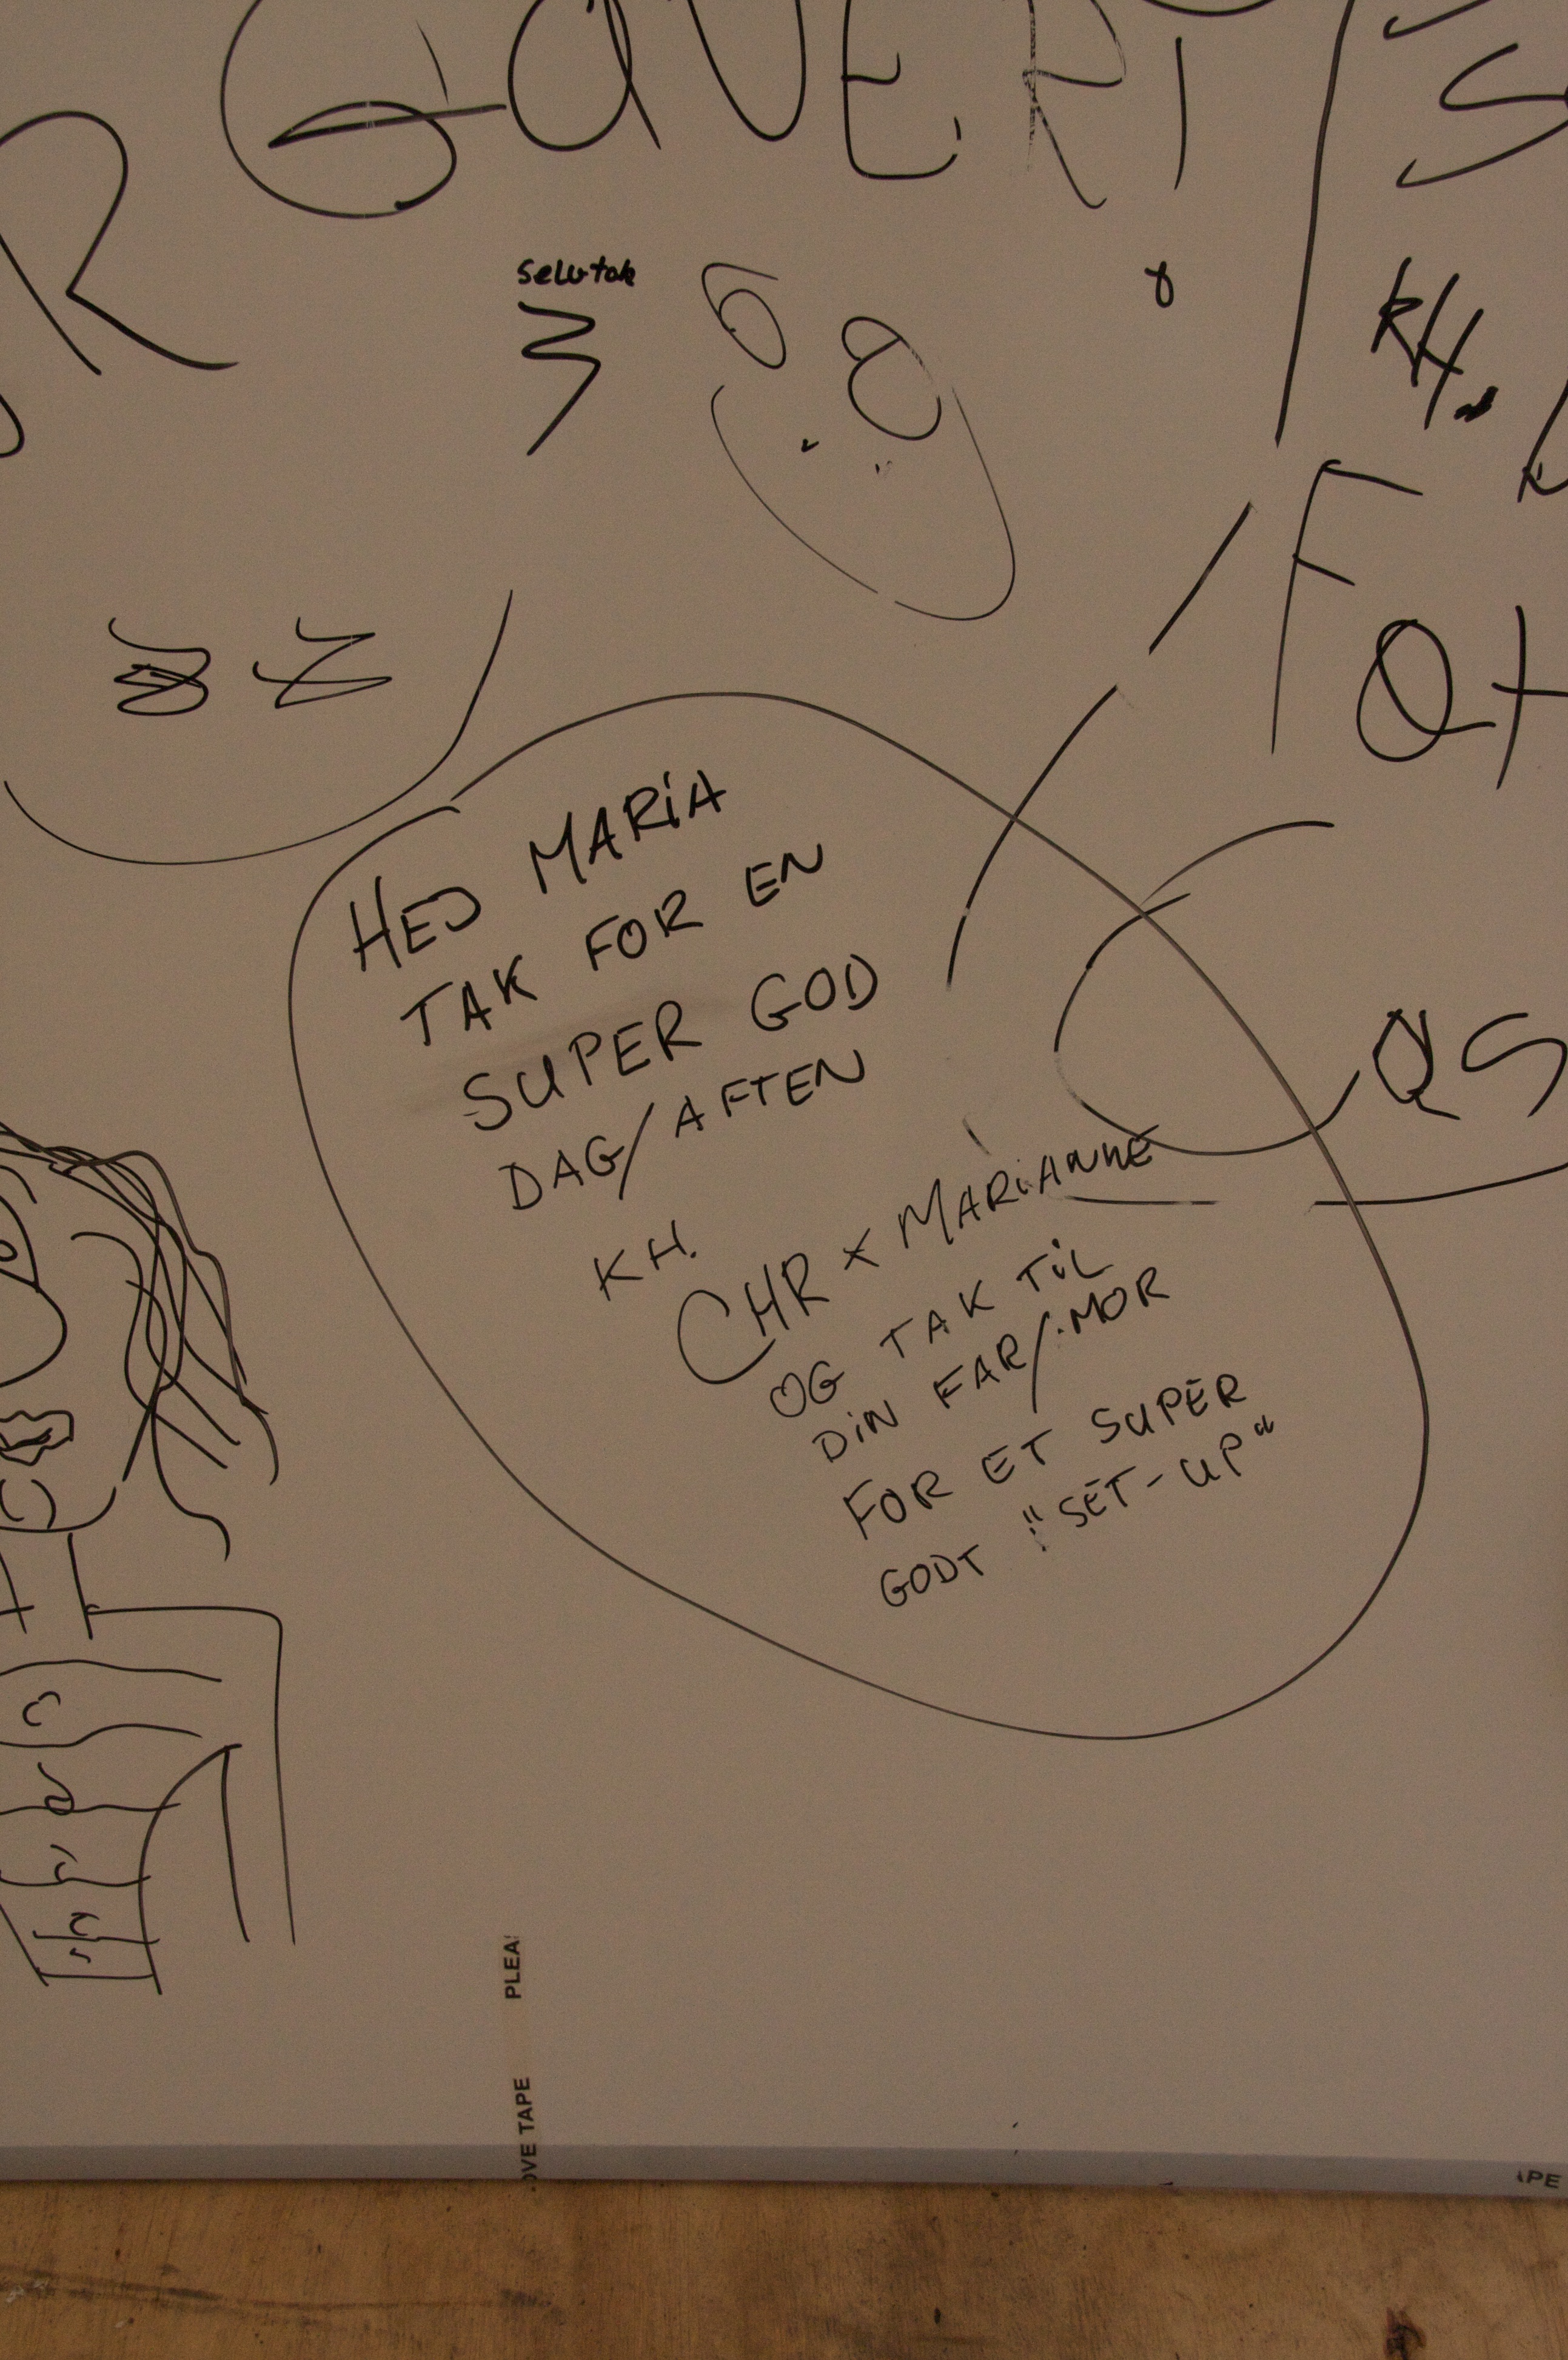 R GAVERI
selvtak
KH.
HEJ MARIA
TAK FOR EN
SUPER GOD
DAG/AFTEN
KH.
CHR x MARIANNE
OG TAK TIL
DIN FAR/MOR
FOR ET SUPER
GODT "SET-UP"
PLEA
OVE TAPE
APE